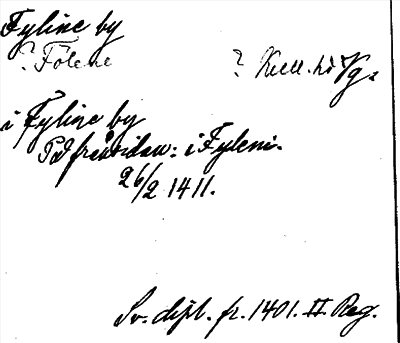 Fyline by
? Fölene ? Kull. hd Vg.
i Fyline by
På frånsidan: i Fyleni.
26/2 1411.
Sv. dipl. fr. 1401. II Reg.